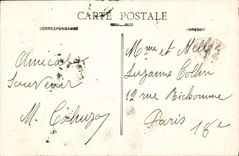 CARTE POSTALE
CORRESPONDANCE
ADRESSE
Amical
Souvenir
M.
Mme et Melle
Suzanne Collin
12 rue Richomme
Paris 18e